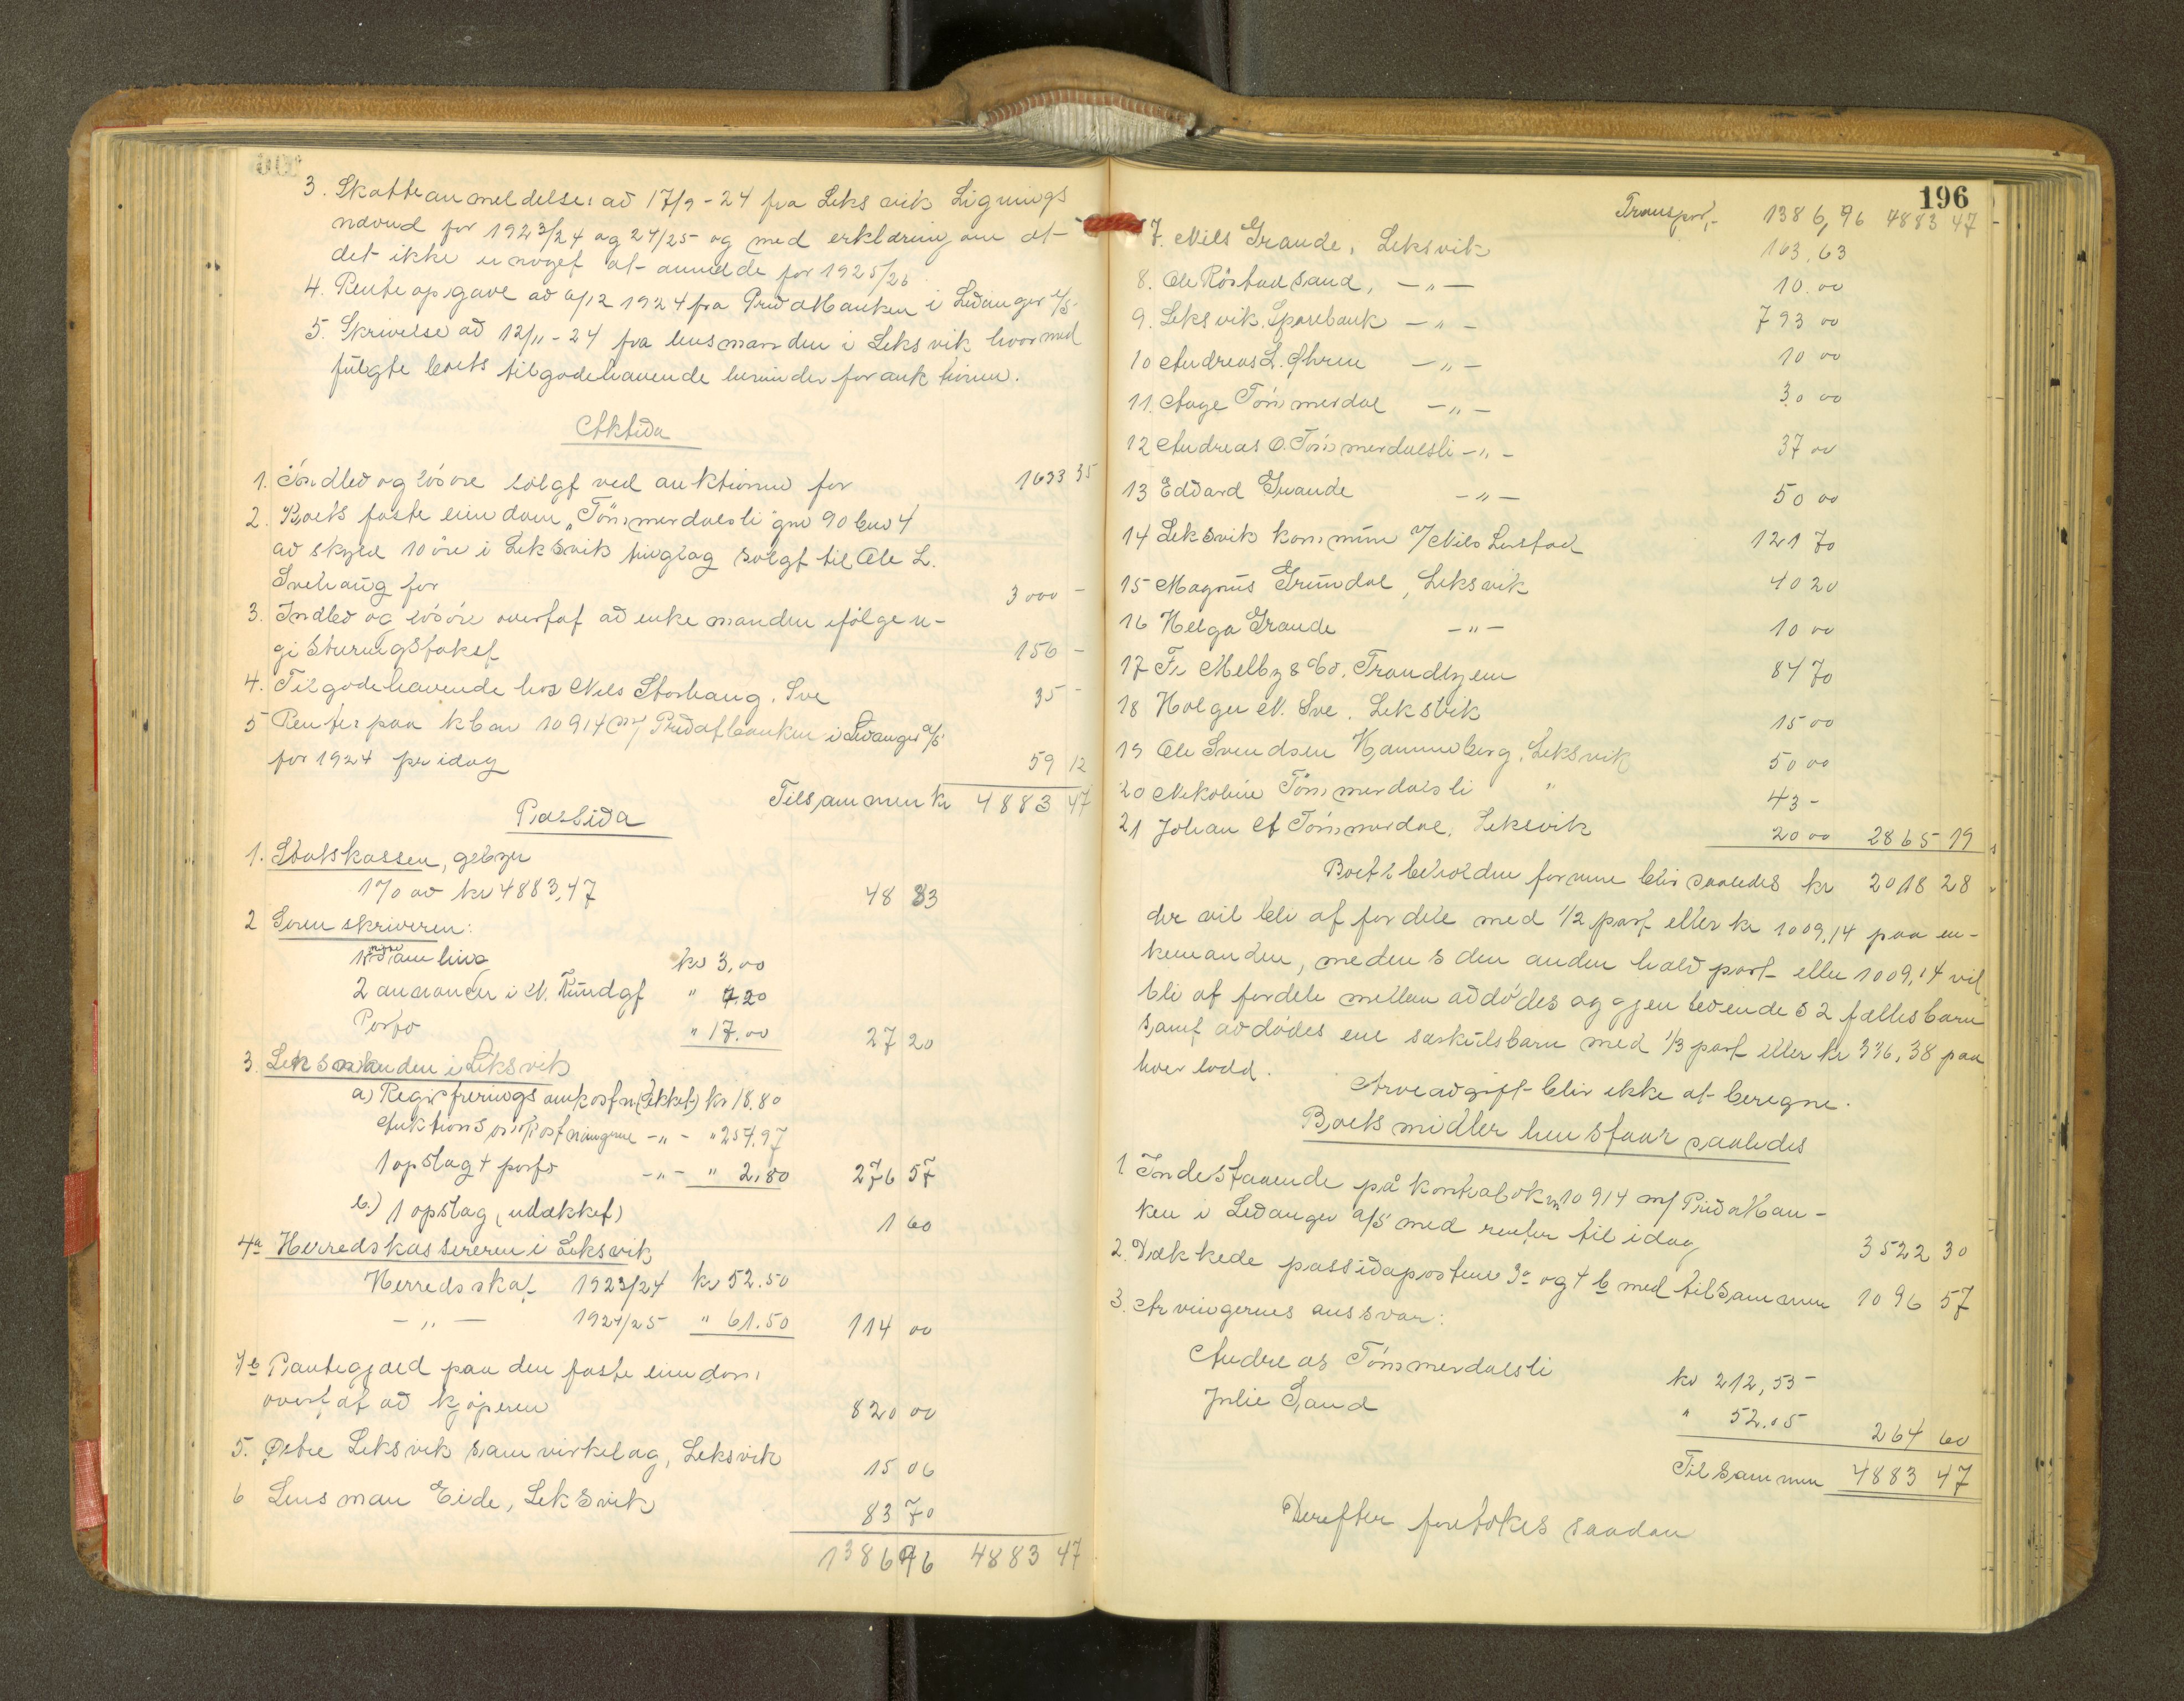 3. Skatteanmeldelser av 17/9-24 fra Leksvik Lignings
nævnd for 1923/24 og 24/25 og med erklæring om at
det ikke er noget at anmelde for 1925/26
4. Renteopgave av 6/12 1924 fra Privatbanken i Levanger a/s
5. Skrivelse av 12/11-24 fra lensmanden i Leksvik hvormed
fulgte boets tilgodehavende herunder for auktionen.
Aktiva
1. Indbo og løsøre solgt ved auktionen for 1633 35
2. Boets faste eiendom "Tømmerdalsli" gno 90 bno 4
av skyld 10 øre i Leksvik tinglag solgt til Ole L.
Svehaug for 3000 -
3. Indbo og løsøre overtat av enkemanden ifølge re-
gistreringstakst 156 -
4. Tilgodehavende hos Nils Storhaug, Sve 35 -
5 Renter paa kbno 10914 m/ Privatbanken i Levanger a/s
for 1924 pr idag 59 12
Tilsammen kr 4883 47
Passiva
1. Statskassen, gebyr
1% av kr 4883,47 48 83
2 Sorenskriveren:
1 samling kr 3,00
2 annoncer i N. Kundgj " 7.20
Porto " 17.00 27 20
3. Lensmanden i Leksvik
a) Registreringsomkostn. (dækket) kr 18.80
Auktionsomkostningerne -"- " 254,97
1 opslag + porto -"- " 2,80 276 57
b.) 1 opslag (udækket) 1 60
4a Herredskassereren i Leksvik
Herredsskat 1923/24 kr 52.50
-"- 1924/25 " 61.50 114 00
4b Pantegjæld paa den faste eiendom,
overtat av kjøperen 820 00
5. Østre Leksvik samvirkelag, Leksvik 15 06
6 Lensman Eide, Leksvik 83 70
1386 96 4883 47
196
Transport 1386,96 4883 47
7. Nils Grande, Leksvik 163,63
8. Ole Røstad sand, -"- 10.00
9. Leksvik Sparebank -"- 793 00
10 Andreas L. Øhren -"- 10 00
11. Aage Tømmerdal -"- 30 00
12 Andreas O. Tømmerdalsli -"- 37 00
13 Edvard Grande -"- 50 00
14 Leksvik kommune v/ Nils 121 70
15 Magnus Grundal, Leksvik 40 20
16 Helga Grande -"- 10 00
17 Fr Melby & Co. Trondhjem 84 70
18 Holger N. Sve. Leksvik 15 00
19 Ole Svendsen Hammerberg, Leksvik 50 00
20 Nikoline Tømmerdalsli " 43 -
21 Johan Tømmerdal, Leksvik 20 00 2865 19
Boets beholdne formue blir saaledes kr 2018 28
der vil bli at fordele med 1/2 part eller kr 1009,14 paa en-
kemanden, medens den anden halvpart eller 1009,14 vil
bli at fordele mellem avdødes og gjenlevendes 2 fællesbarn
samt avdødes ene særkulsbarn med 1/3 part eller kr 336,38 paa
hver lodd.
Arveavgift blir ikke at beregne.
Boets midler henstaar saaledes
1 Indestaaende på kontrabok nr 10914 m/ Privatban-
ken i Levanger a/s med renter til idag 3522 30
2. Dækkede passivaposterne 3a og 4b med tilsammen 1096 57
3. Arvingernes ansvar:
Andreas Tømmerdalsli kr 212,55
Julie Sand " 52.05 264 60
Tilsammen 4883 47
Derefter foretokes saadan